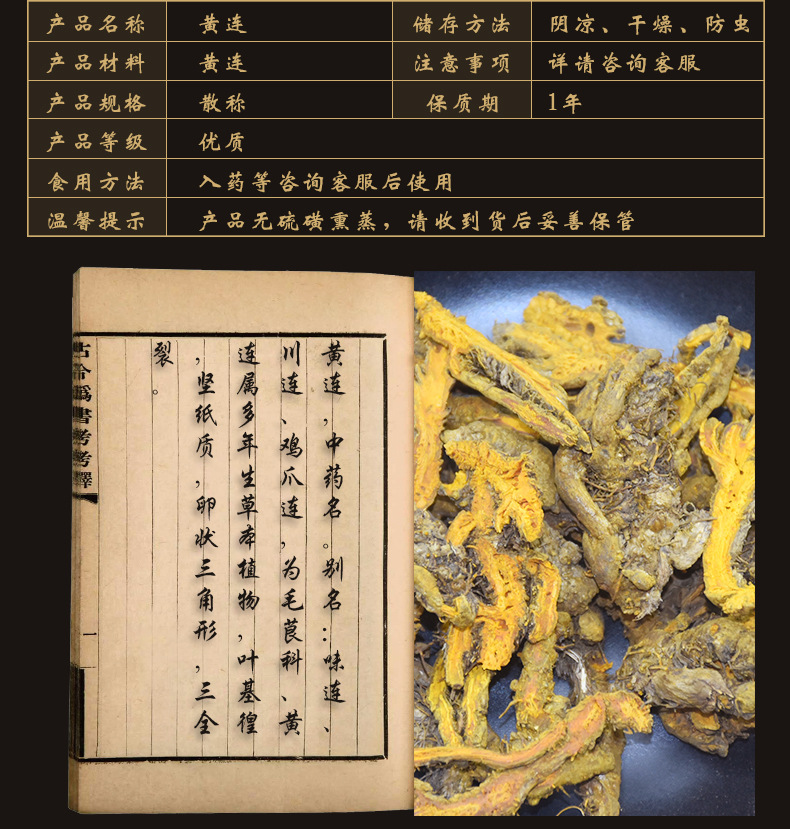 产品名称 黄连 储存方法 阴凉、干燥、防虫
产品材料 黄连 注意事项 详请咨询客服
产品规格 散称 保质期 1年
产品等级 优质
食用方法 入药等咨询客服后使用
温馨提示 产品无硫磺熏蒸，请收到货后妥善保管
黄连，中药名。别名：味连、
川连、鸡爪连，为毛茛科、黄
连属多年生草本植物，叶基徨
，坚纸质，卵状三角形，三全
裂。
古今僞書考考釋
一